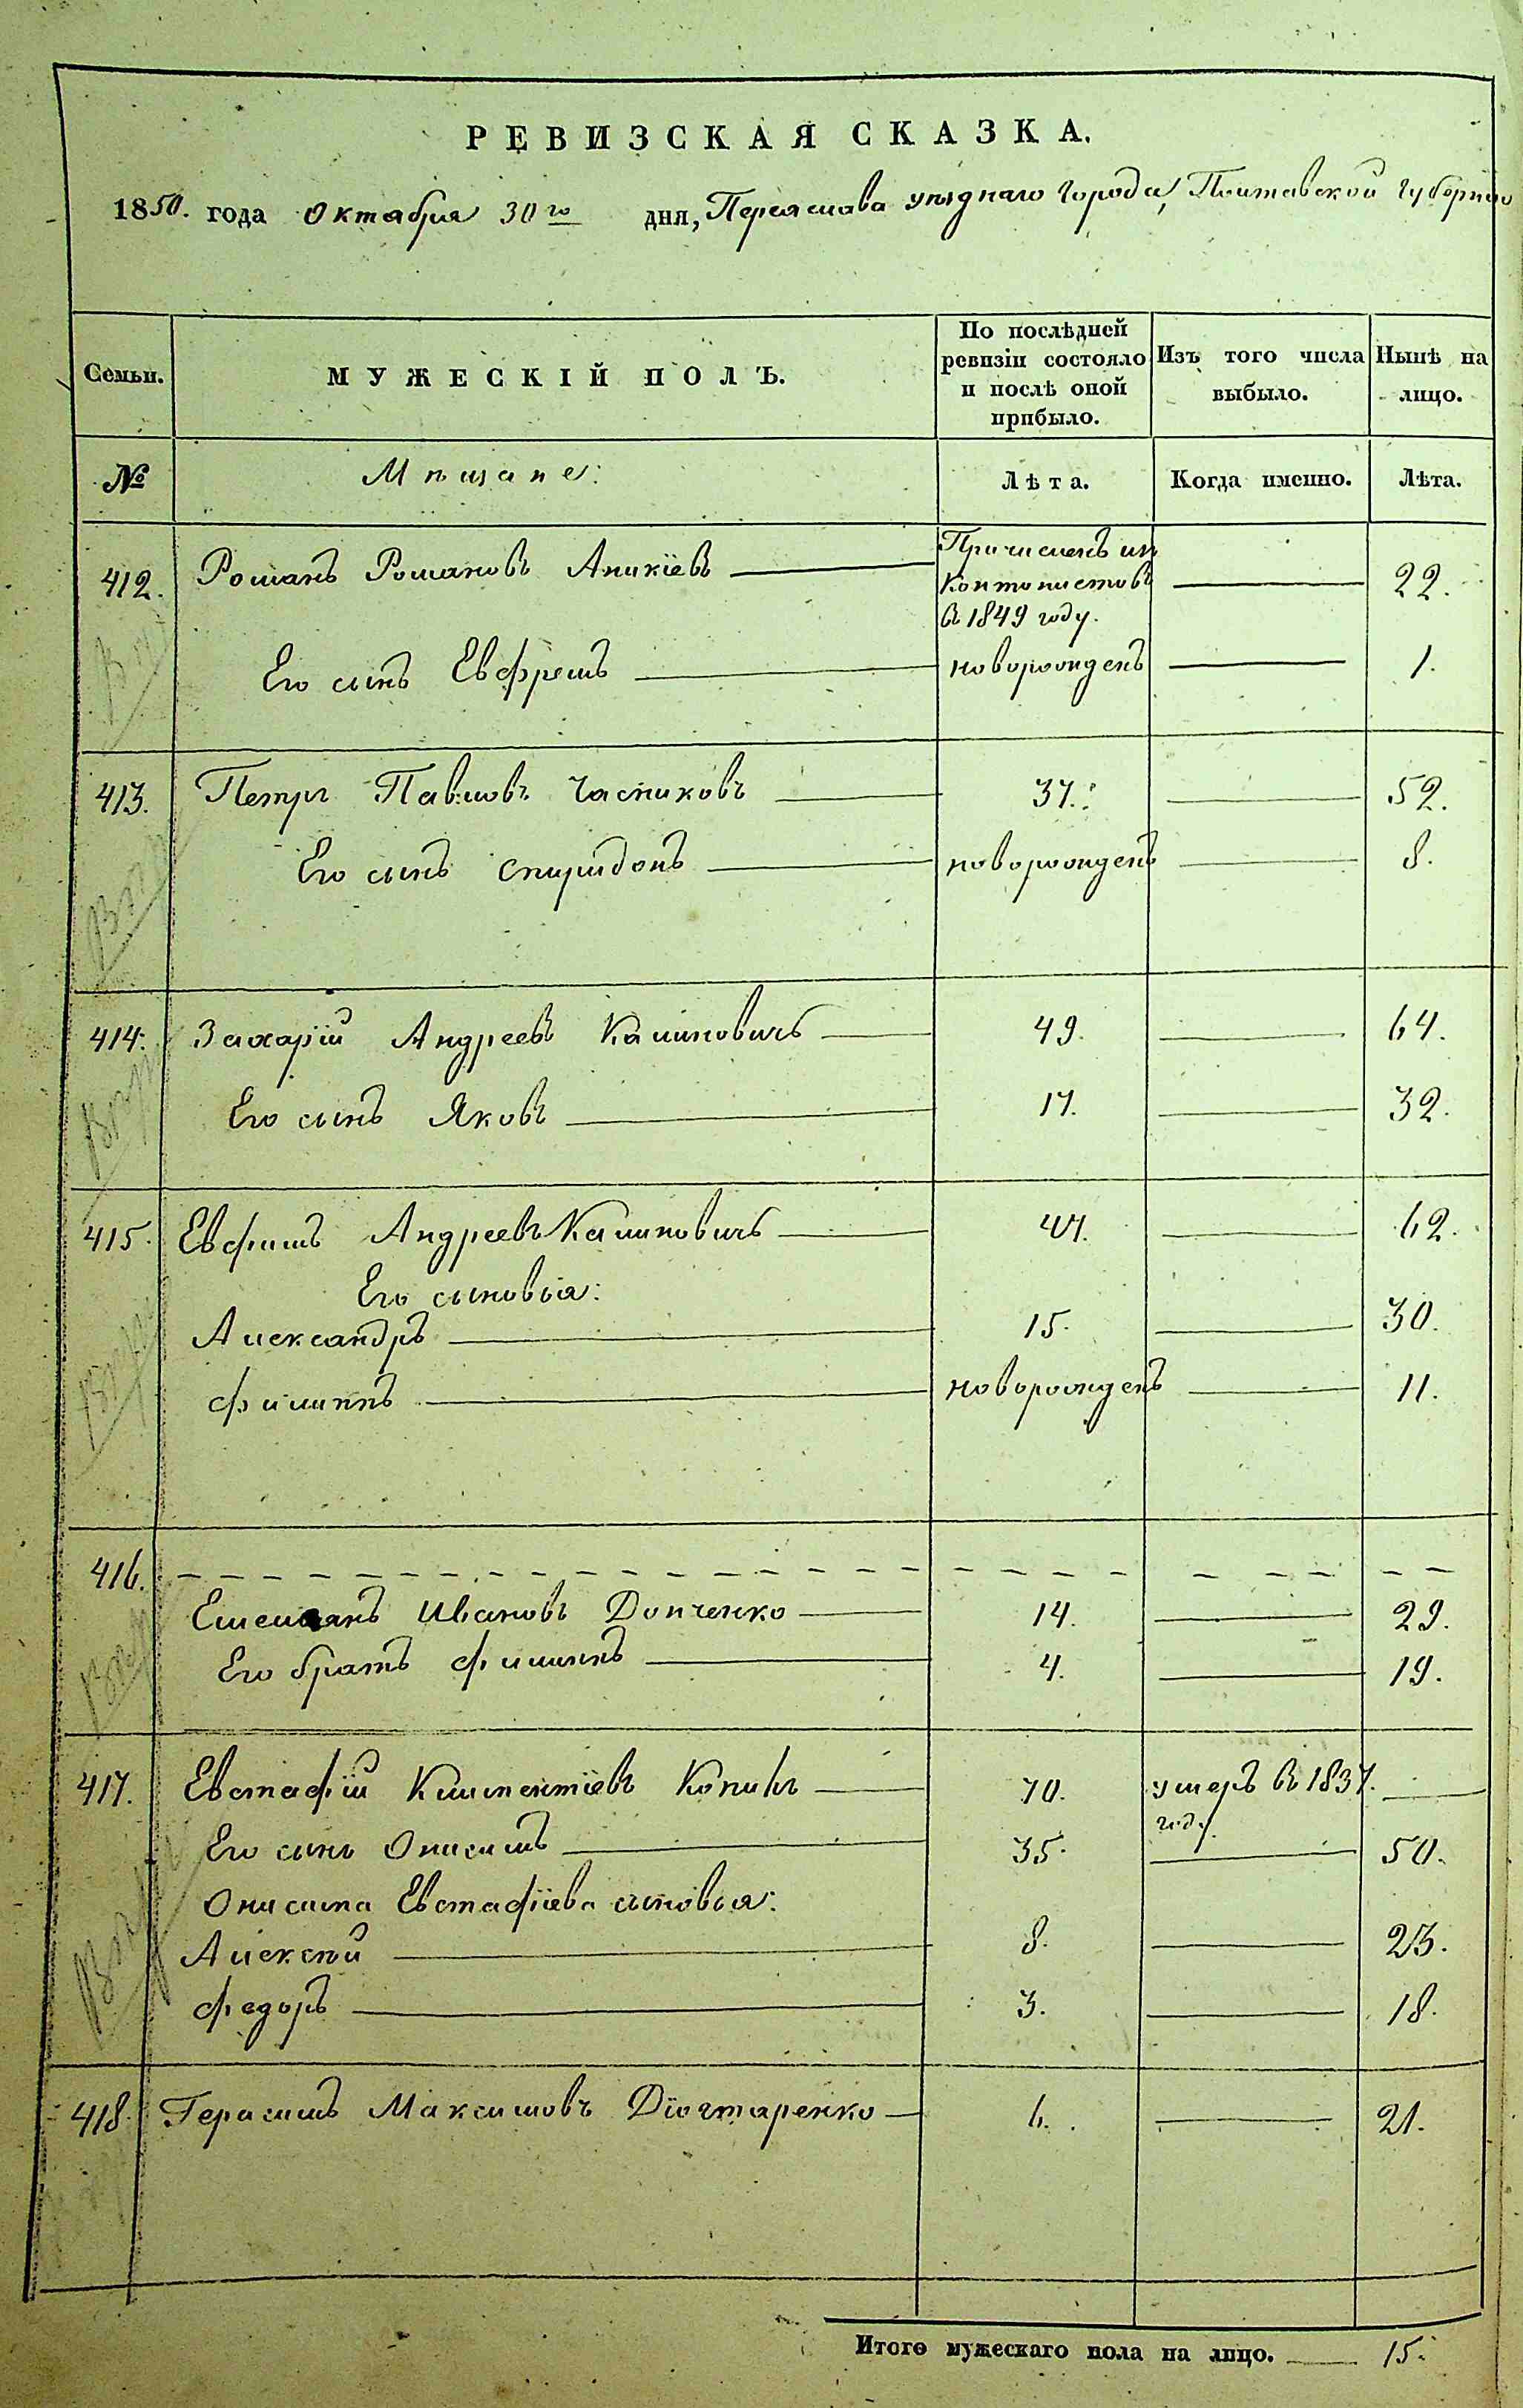 РЕВИЗСКАЯ СКАЗКА.
1850. года Октября 30го дня, Переяслава уѣзднаго города, Полтавской Губерніи
Семьи. МУЖЕСКІЙ ПОЛЪ. По послѣдней ревизіи состояло и послѣ оной прибыло. Изъ того числа выбыло. Нынѣ на лицо.
№ Мѣщане: Лѣта. Когда именно. Лѣта.
412. Романъ Романовъ Аникіевъ Причисленъ изъ Контонистовъ в 1849 году. 22.
Его сынъ Евфремъ новорожденъ 1.
413. Петръ Павловъ Часниковъ 37. 52.
Его сынъ Спиридонъ новорожденъ 8.
414. Захарій Андреевъ Калиновичъ 49. 64.
Его сынъ Яковъ 17. 32.
415. Евфимъ Андреевъ Калиновичъ 47. 62.
Его сыновья:
Александръ 15. 30.
Филипъ новорожденъ 11.
416.
Емельянъ Ивановъ Донченко 14. 29.
Его братъ Филипъ 4. 19.
417. Евстафій Климентіевъ 70. умеръ въ 1837. году.
Его сынъ Онисимъ 35. 50.
Онисима Евстафіева сыновья:
Алексѣй 8. 23.
Федоръ 3. 18.
418. Герасимъ Максимовъ Діогтаренко 6. 21.
Итого мужескаго пола на лицо. 15.